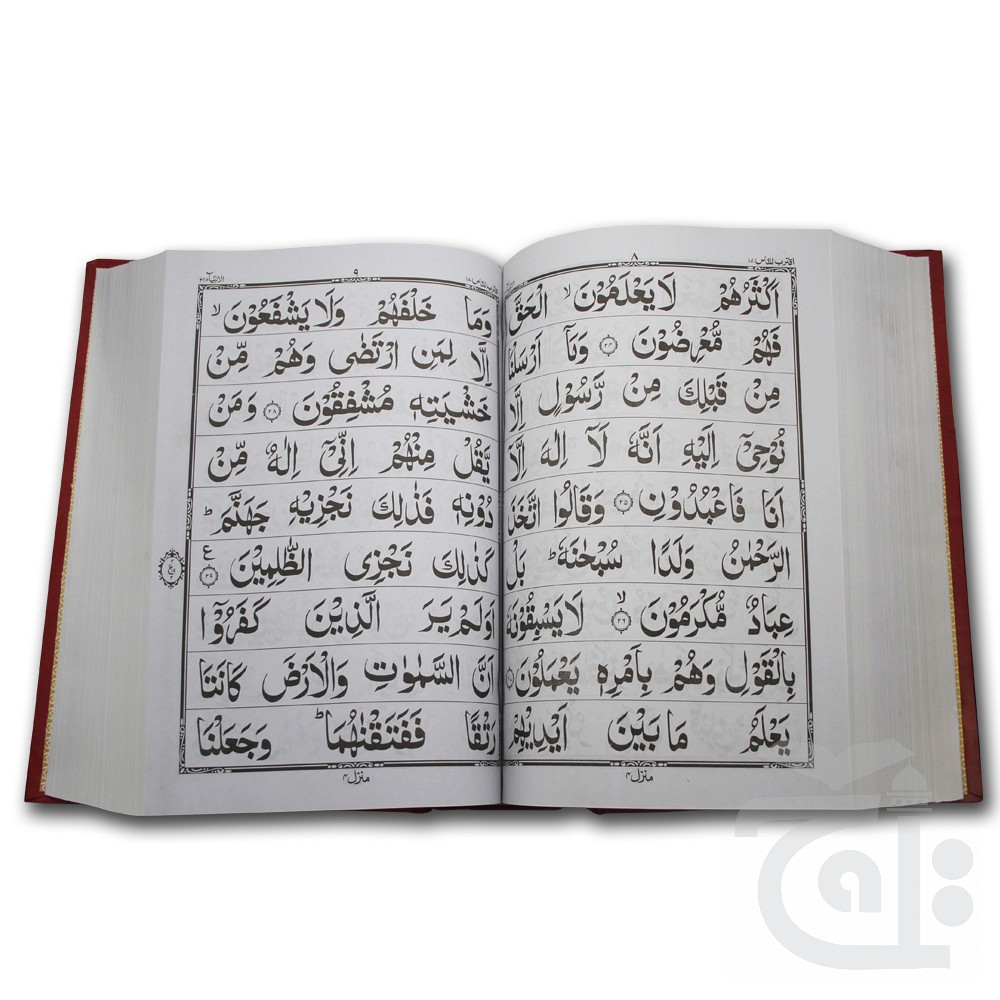 ٨ اقترب للناس ١٧
اَكْثَرُهُمْ لَا يَعْلَمُوْنَ ۙ الْحَقَّ
فَهُمْ مُّعْرِضُوْنَ ۝۲۴ وَمَاۤ اَرْسَلْنَا
مِنْ قَبْلِكَ مِنْ رَّسُوْلٍ اِلَّا
نُوْحِيْۤ اِلَيْهِ اَنَّهٗ لَاۤ اِلٰهَ اِلَّاۤ
اَنَا فَاعْبُدُوْنِ ۝۲۵ وَقَالُوا اتَّخَذَ
الرَّحْمٰنُ وَلَدًا سُبْحٰنَهٗ ؕ بَلْ
عِبَادٌ مُّكْرَمُوْنَ ۙ۝۲۶ لَا يَسْبِقُوْنَهٗ
بِالْقَوْلِ وَهُمْ بِاَمْرِهٖ يَعْمَلُوْنَ ۝۲۷
يَعْلَمُ مَا بَيْنَ اَيْدِيْهِمْ
منزل ٤
الانبیآء ٢١ ٩
وَمَا خَلْفَهُمْ وَلَا يَشْفَعُوْنَ ۙ
اِلَّا لِمَنِ ارْتَضٰى وَهُمْ مِّنْ
خَشْيَتِهٖ مُشْفِقُوْنَ ۝۲۸ وَمَنْ
يَّقُلْ مِنْهُمْ اِنِّيْۤ اِلٰهٌ مِّنْ
دُوْنِهٖ فَذٰلِكَ نَجْزِيْهِ جَهَنَّمَ ؕ
كَذٰلِكَ نَجْزِي الظّٰلِمِيْنَ ۝۲۹ ع
اَوَلَمْ يَرَ الَّذِيْنَ كَفَرُوْۤا
اَنَّ السَّمٰوٰتِ وَالْاَرْضَ كَانَتَا
رَتْقًا فَفَتَقْنٰهُمَا ؕ وَجَعَلْنَا
منزل ٤